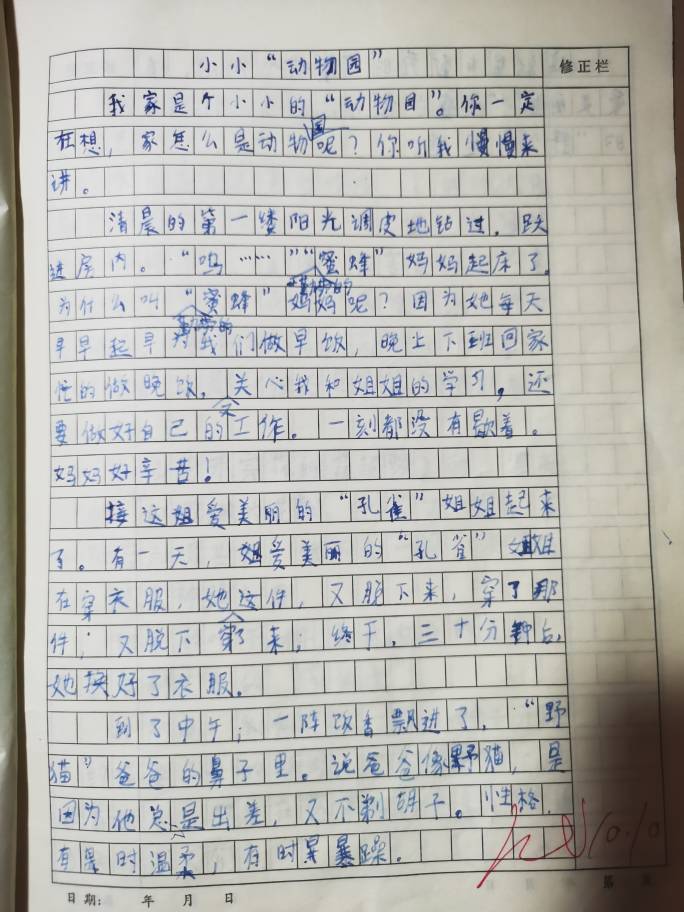 小小“动物园”
修正栏
我家是个小小的“动物园”。你一定
在想，家怎么是动物园呢？你听我慢慢来
讲。
清晨的第一缕阳光调皮地钻过，跃
进房内。“嗚……”“蜜蜂”妈妈起床了。
为什么叫“蜜蜂”勤劳的妈妈呢？因为她每天
早早起早勤劳的为我们做早饭，晚上下班回家
忙的做晚饭，关心我和姐姐的学习，还
要做好自己的工作。一刻都没有歇着。
妈妈好辛苦！
接这姐爱美丽的“孔雀”姐姐起来
了。有一天，姐爱美丽的“孔雀”姐姐
在穿衣服，她这件，又脱下来，穿了那
件；又脱下穿了来；终于，三十分钟后，
她换好了衣服。
到了中午；一阵饭香飘进了，“野
猫”爸爸的鼻子里。说爸爸像野猫，是
因为他总是出差，又不剃胡子。性格，
有是时温柔，有时暴躁。
10.10
日期： 年 月 日
第 页